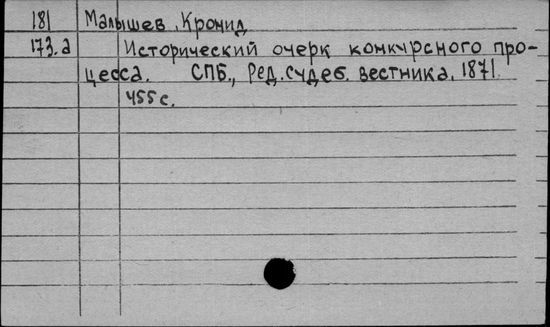 181 Малышев, Кронид
173.а Исторический очерк конкурсного про-
цесса. СПБ., Ред. судеб. вестника, 1871.
455 с.